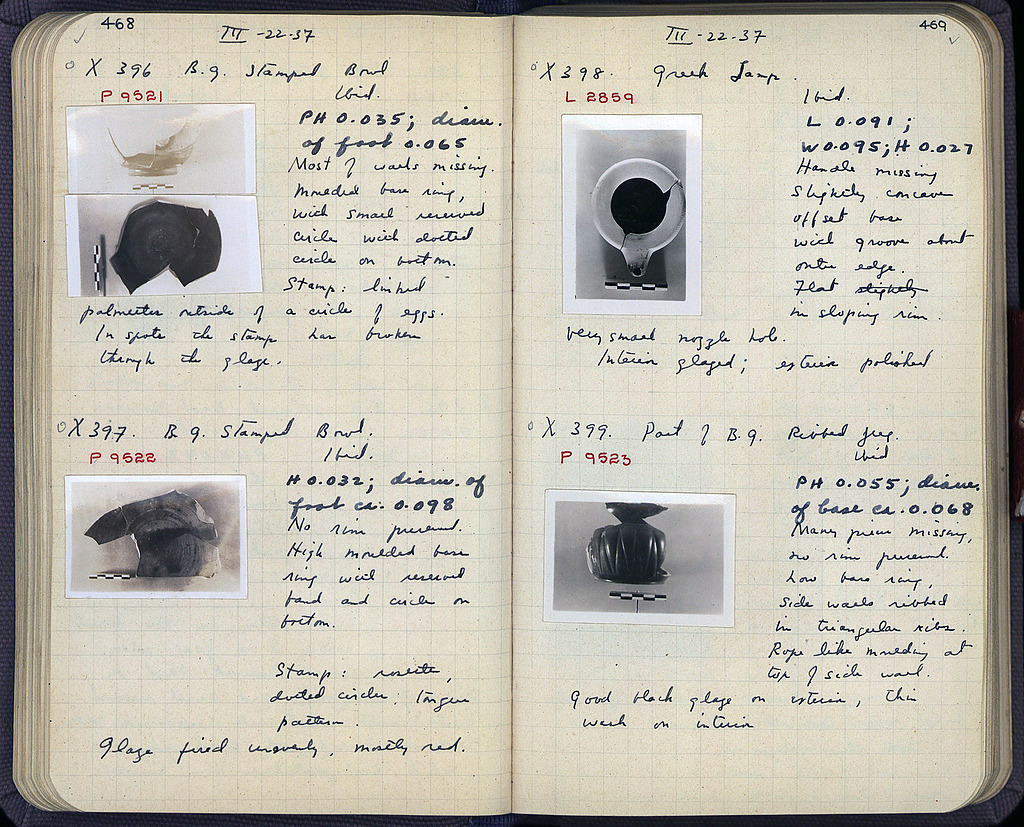 468
III -22-37
X 396 B.g. Stamped Bowl
P 9521
Ibid.
PH 0.035; diam.
of foot 0.065
Most of walls missing.
Moulded base ring,
with small reserved
circle with dotted
circle on bottom.
Stamp: linked
palmettes outside of a circle of eggs.
In spots the stamp has broken
through the glaze.
X 397. B.g. Stamped Bowl.
P 9522
Ibid.
H 0.032; diam. of
foot ca. 0.098
No rim preserved.
High moulded base
ring with reserved
band and circle on
bottom.
Stamp: rosette,
dotted circle; tongue
pattern.
Glaze fired unevenly, mostly red.
469
III -22-37
X 398. Greek Lamp.
L 2859
Ibid.
L 0.091;
W 0.095; H 0.027
Handle missing
Slightly concave
offset base
with groove about
outer edge.
Flat slightly
in sloping rim.
Very small nozzle hole.
Interior glazed; exterior polished
X 399. Part of B.g. Ribbed Jug.
P 9523
Ibid
PH 0.055; diam.
of base ca. 0.068
Many pieces missing,
no rim preserved.
Low base ring,
Side walls ribbed
in triangular ribs.
Rope like moulding at
top of side wall.
Good black glaze on exterior, thin
wash on interior